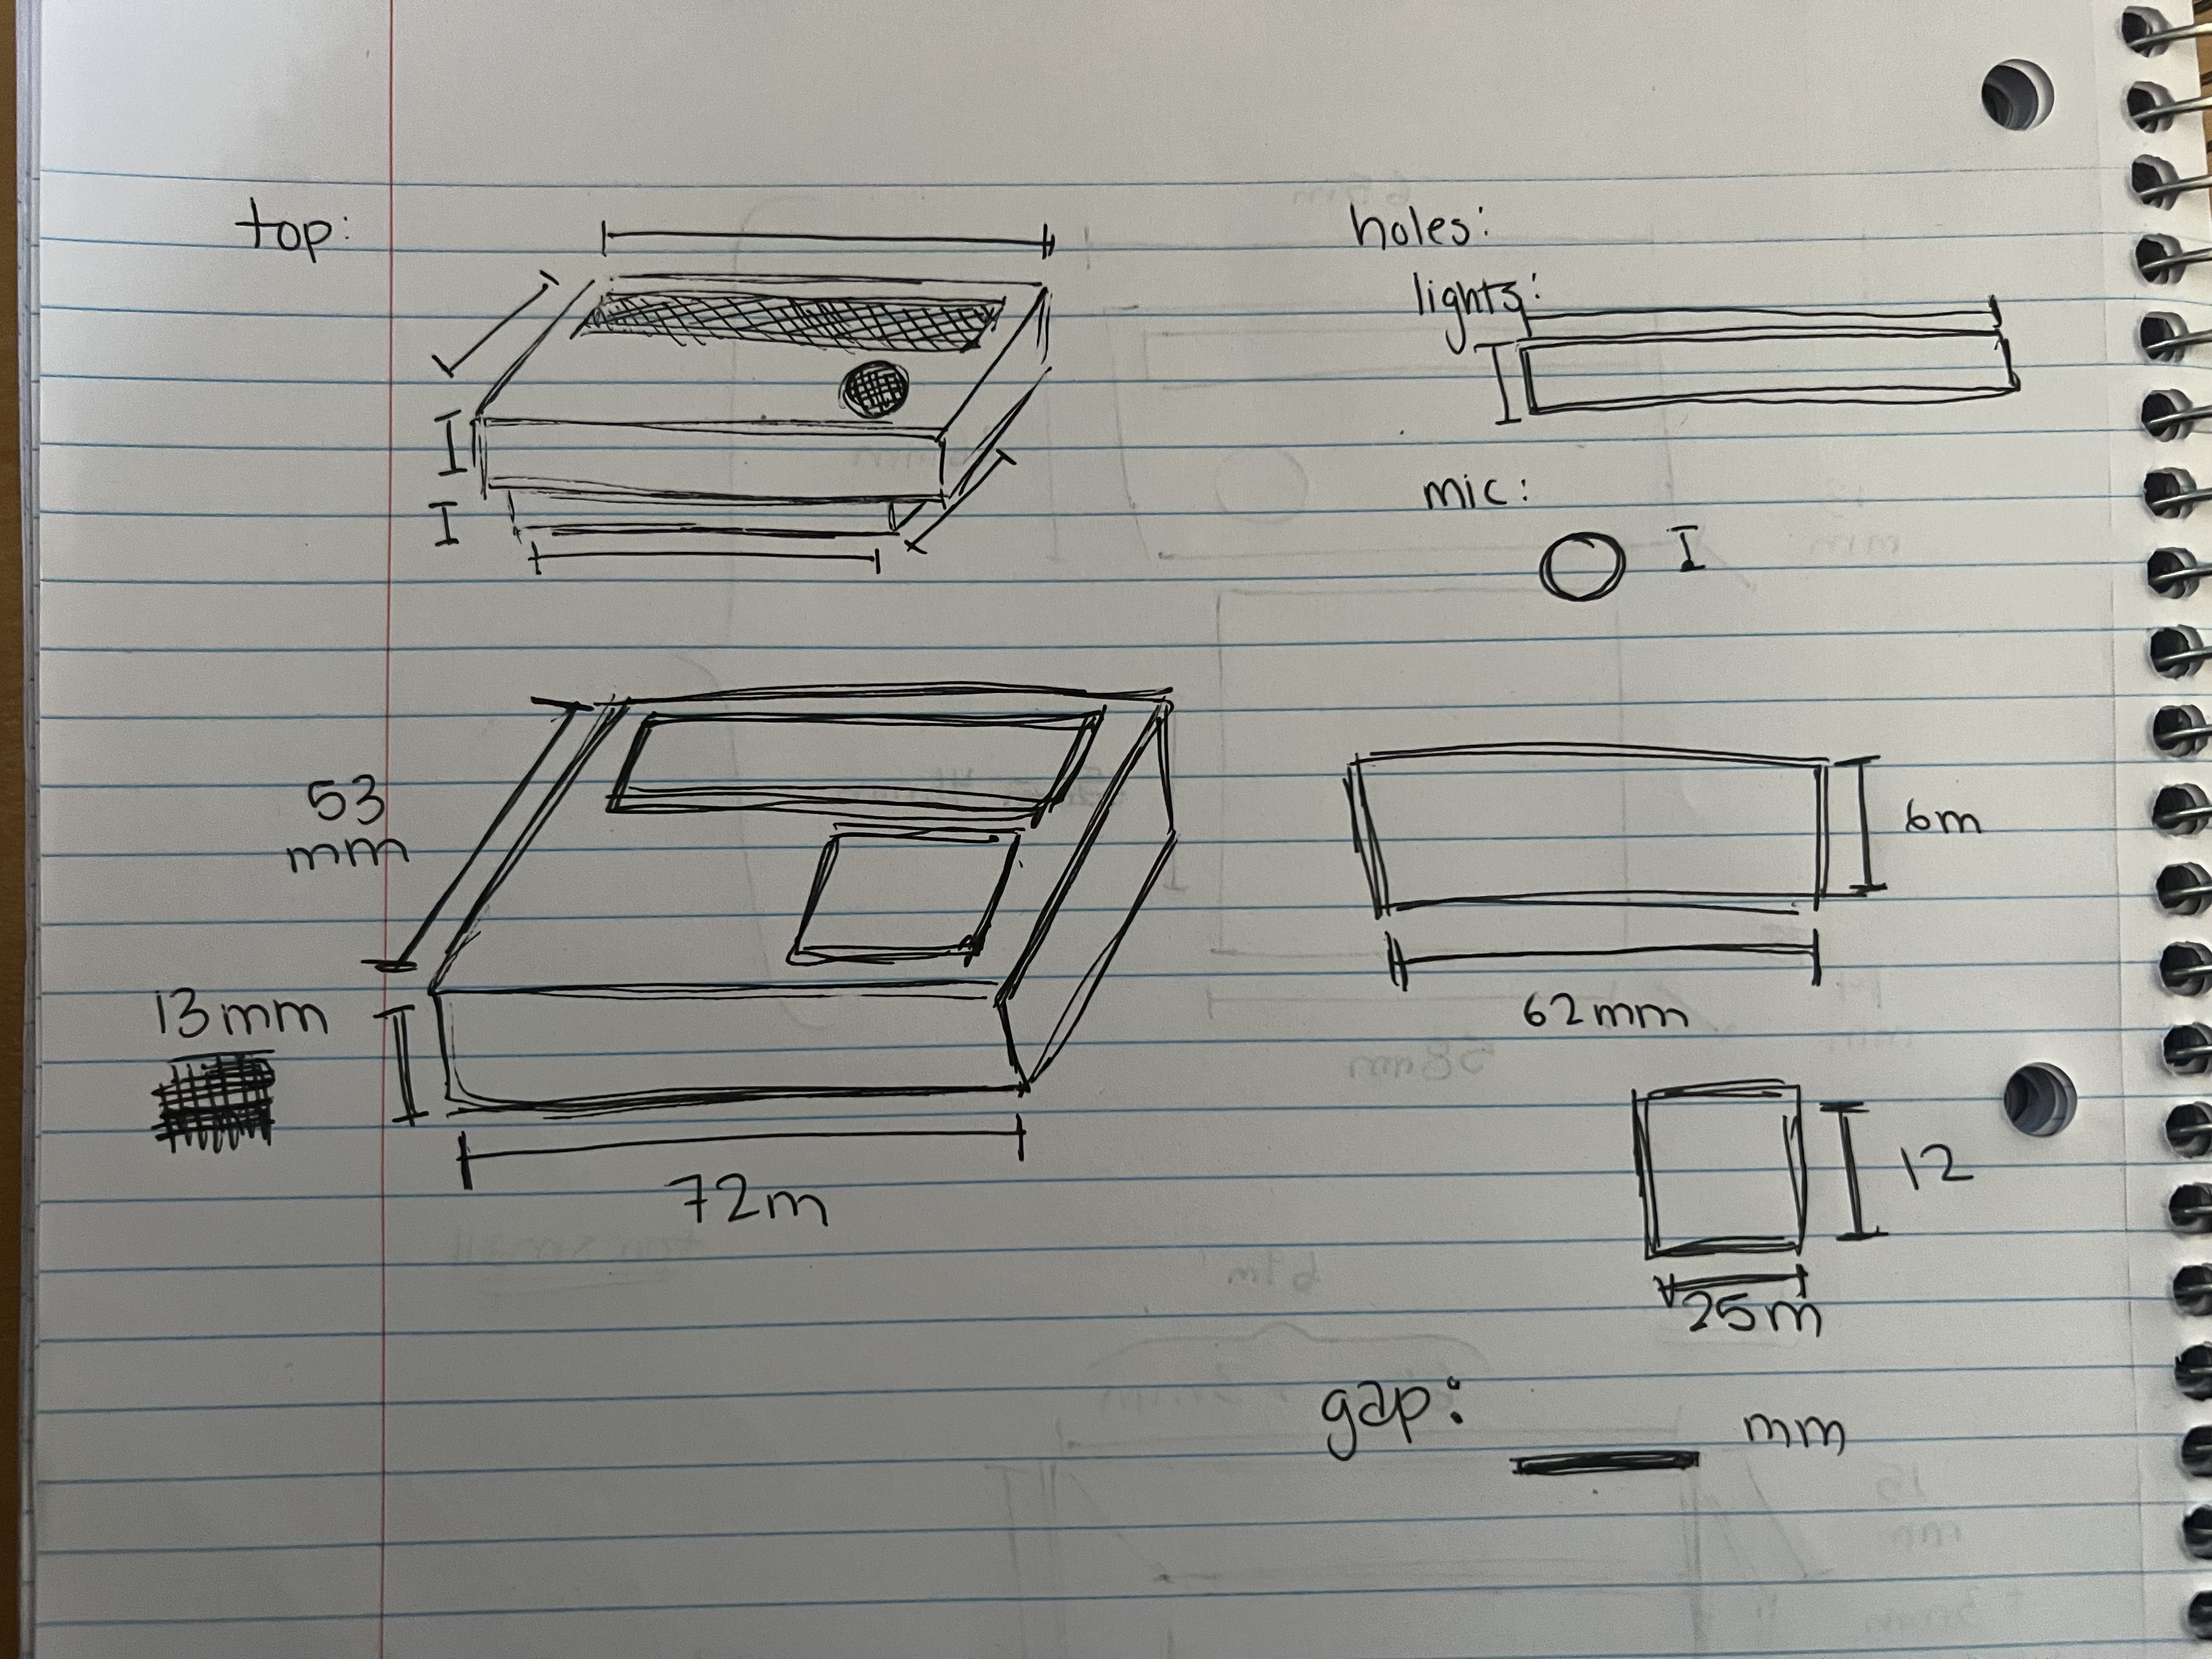 top:
holes:
lights:
mic:
53
mm
6m
13mm
62mm
72m
12
25m
gap: mm